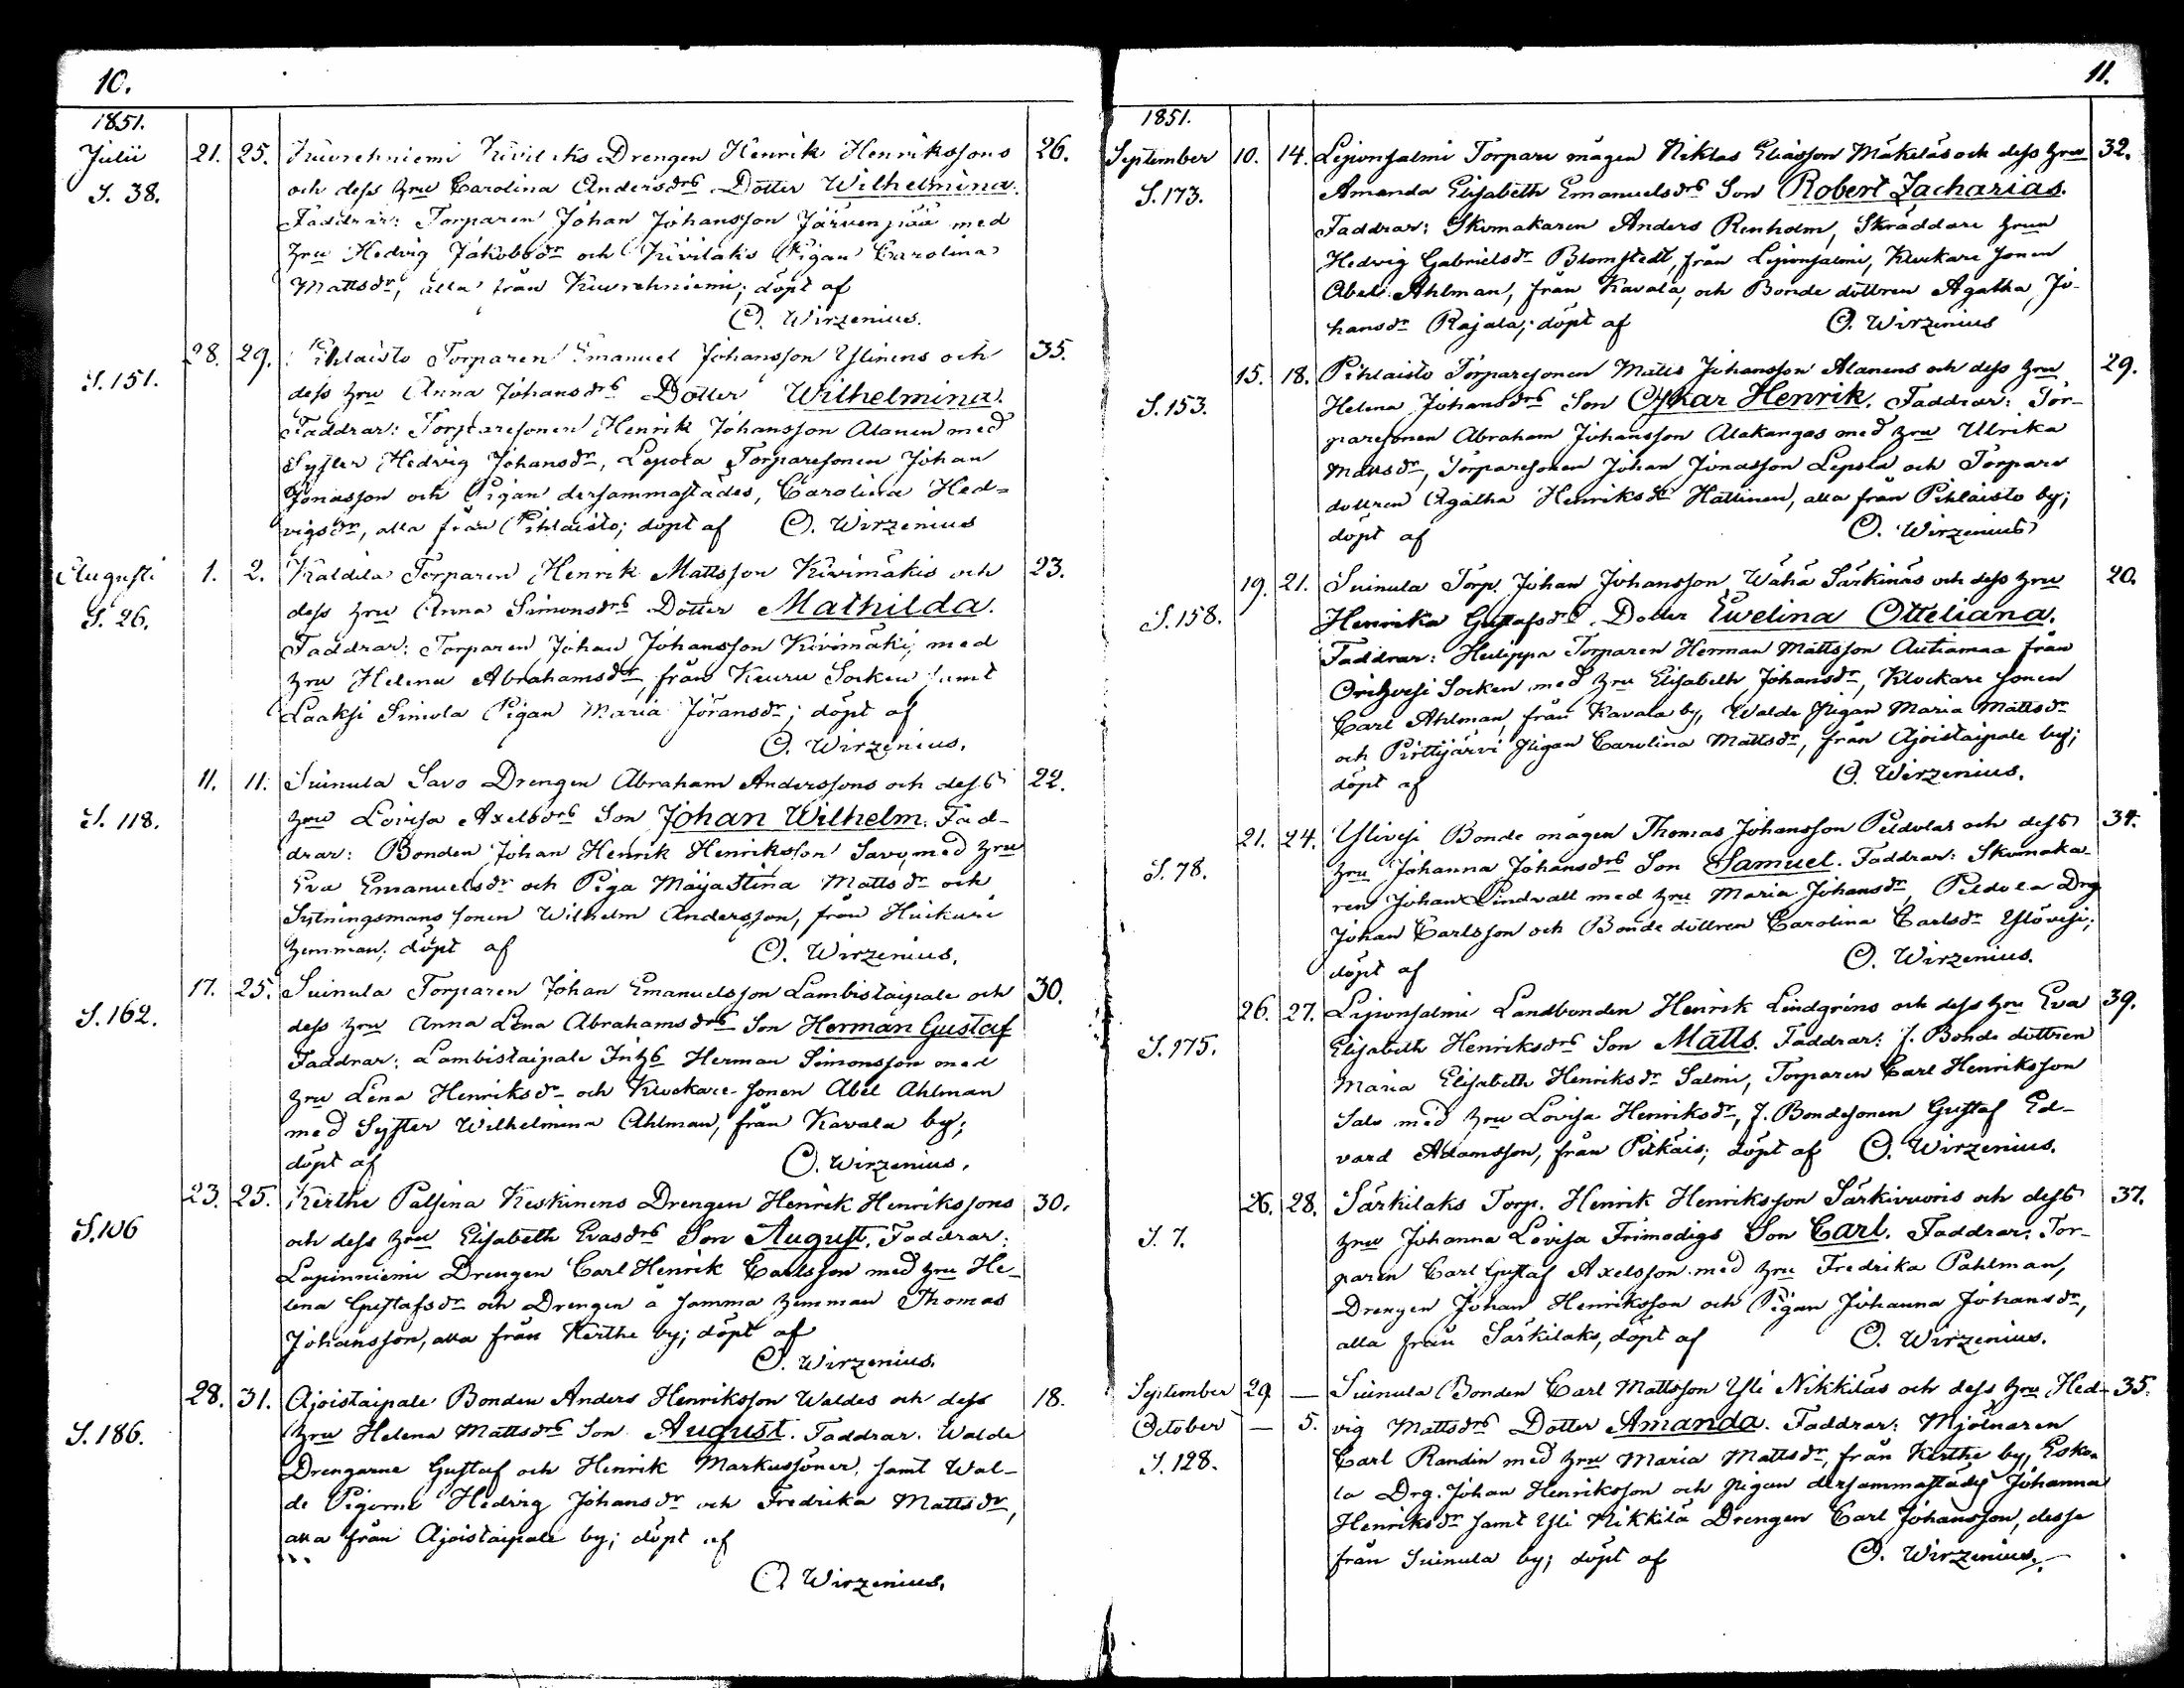 10.
1851.
Julii 21. 25. Kuivrehniemi Kivilaks Drengen Henrik Henrikssons 26.
S. 38. och dess hru Carolina Andersdrs Dotter Wilhelmina.
Faddrar: Torparen Johan Johansson Järvenpää med
hru Hedvig Jakobsdr och Kivilaks Pigan Carolina
Mattsdr, alla från Kuivrehniemi; döpt af
O. Wirzenius.
28. 29. Pihlaisto Torparen Emanuel Johansson Ylinens och 35.
S. 151. dess hru Anna Johansdrs Dotter Wilhelmina.
Faddrar: Torparesonen Henrik Johansson Alanen med
Syster Hedvig Johansdr, Lepola Torparesonen Johan
Jonasson och Pigan dersammastädes, Carolina Hed-
vigsdr, alla från Pihlaisto; döpt af O. Wirzenius
Augusti 1. 2. Kaldila Torparen Henrik Mattsson Kivimäkis och 23.
S. 26. dess hru Anna Simonsdrs Dotter Mathilda.
Faddrar: Torparen Johan Johansson Kivimäki, med
hru Helena Abrahamsdr, från Keuru Socken samt
Laaksi Sinvola Pigan Maria Joransdr; döpt af
O. Wirzenius.
11. 11. Suinula Savo Drengen Abraham Anderssons och dess 22.
S. 118. hru Lovisa Axelsdrs Son Johan Wilhelm. Fad-
drar: Bonden Johan Henrik Henriksson Savo, med hru
Eva Emanuelsdr och Piga Maija Stina Mattsdr och
Sytningsmans sonen Wilhelm Andersson, från Huikuri
hemman; döpt af O. Wirzenius.
17. 25. Suinula Torparen Johan Emanuelsson Lambistaipale och 30.
S. 162. dess hru Anna Lena Abrahamsdrs Son Herman Gustaf
Faddrar: Lambistaipale Inhs Herman Simonsson med
hru Lena Henriksdr och Klockare sonen Abel Ahlman
med Syster Wilhelmina Ahlman, från Kavala by;
döpt af O. Wirzenius.
23. 25. Kerthe Palsina Keskinens Drengen Henrik Henrikssons 30.
S. 106 och dess hru Elisabeth Evasdrs Son August. Faddrar:
Lapinniemi Drengen Carl Henrik Carlsson med hru He-
lena Gustafsdr och Drengen a samma hemman Thomas
Johansson, alla från Kerthe by; döpt af
O. Wirzenius.
28. 31. Ajoistaipale Bonden Anders Henriksson Waldes och dess 18.
S. 186. hru Helena Mattsdrs Son August. Faddrar. Walde
Drengarne Gustaf och Henrik Markussöner, samt Wal-
de Pigorne Hedvig Johansdr och Fredrika Mattsdr,
alla från Ajoistaipale by; döpt af
O. Wirzenius.
11.
1851.
September 10. 14. Lejonsalmi Torpare mågen Niklas Eliasson Mäkeläs och dess hru 32.
S. 173. Amanda Elisabeth Emanuelsdrs Son Robert Zacharias.
Faddrar: Skomakaren Anders Renholm, Skräddare hrun
Hedvig Gabrielsdr Blomstedt, från Lejonsalmi, Klockare sonen
Abel Ahlman, från Kavala, och Bonde dottren Agatha Jo-
hansdr Rajala; döpt af O. Wirzenius
15. 18. Pihlaisto Torparesonen Matts Johansson Alanens och dess hru 29.
S. 153. Helena Johansdrs Son Oskar Henrik. Faddrar: Tor-
paresonen Abraham Johansson Alakangas med hru Ulrika
Mansdr, Torparesonen Johan Jonasson Lepola och Torpare
dottren Agatha Henriksdr Hattinen, alla från Pihlaisto by;
döpt af O. Wirzenius
19. 21. Suinula Torp. Johan Johansson Wähä Särkinäs och dess hru 20.
S. 158. Henrika Gustafsdrs Dotter Ewelina Otteliana.
Faddrar: Huilippa Torparen Herman Mattsson Autiamaa från
Orihvesi Socken med hru Elisabeth Johansdr, Klockare sonen
Carl Ahlman, från Kavala by, Walde Pigan Maria Mattsdr
och Pirttijärvi Pigan Carolina Mattsdr, från Ajoistaipale by;
döpt af O. Wirzenius.
21. 24. Ylivesi Bonde mågen Thomas Johansson Peldolas och dess 34.
S. 78. hru Johanna Johansdrs Son Samuel. Faddrar: Skomaka-
ren Johan Lindvall med hru Maria Johansdr, Peldola Drg
Johan Carlsson och Bonde dottren Carolina Carlsdr Ylövesi;
döpt af O. Wirzenius.
26. 27. Lejonsalmi Landbonden Henrik Lindgréns och dess hru Eva 39.
S. 175. Elisabeth Henriksdrs Son Matts. Faddrar: J. Bonde dottren
Maria Elisabeth Henriksdr Salmi, Torparen Carl Henriksson
Salo med hru Lovisa Henriksdr, J. Bondesonen Gustaf Ed-
vard Adamsson, från Pitkäis; döpt af O. Wirzenius.
26. 28. Särkilaks Torp. Henrik Henriksson Särkivuoris och dess 37.
S. 7. hru Johanna Lovisa Frimodigs Son Carl. Faddrar: Tor-
paren Carl Gustaf Axelsson med hru Fredrika Påhlman,
Drengen Johan Henriksson och Pigan Johanna Johansdr,
alla från Särkilaks, döpt af O. Wirzenius.
September 29 — Suinula Bonden Carl Mattsson Yli Nikkiläs och dess hru Hed- 35.
October — 5. vig Mattsdrs Dotter Amanda. Faddrar: Mjölnaren
S. 128. Carl Randin med hru Maria Mattsdr, från Kerthe by, Esko-
la Drg. Johan Henriksson och Pigan dersammastädes Johanna
Henriksdr samt Yli Nikkilä Drengen Carl Johansson, desse
från Suinula by; döpt af O. Wirzenius.